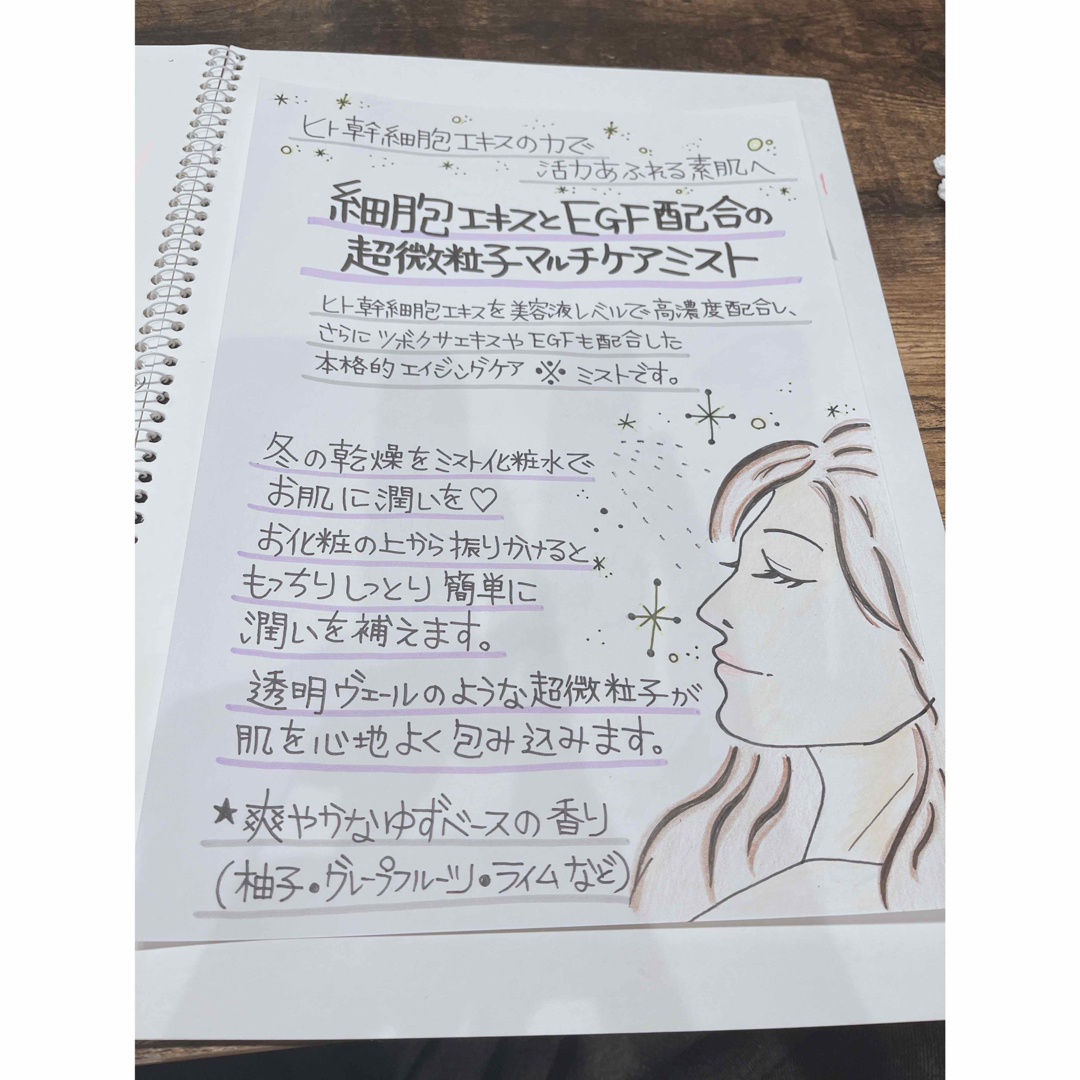 ヒト幹細胞エキスの力で
活力あふれる素肌へ
細胞エキスとEGF配合の
超微粒子マルチケアミスト
ヒト幹細胞エキスを美容液レベルで高濃度配合し、
さらにツボクサエキスやEGFも配合した
本格的エイジングケア※ミストです。
冬の乾燥をミスト化粧水で
お肌に潤いを♡
お化粧の上から振りかけると
もっちりしっとり簡単に
潤いを補えます。
透明ヴェールのような超微粒子が
肌を心地よく包み込みます。
★爽やかなゆずベースの香り
(柚子・グレープフルーツ・ライムなど)